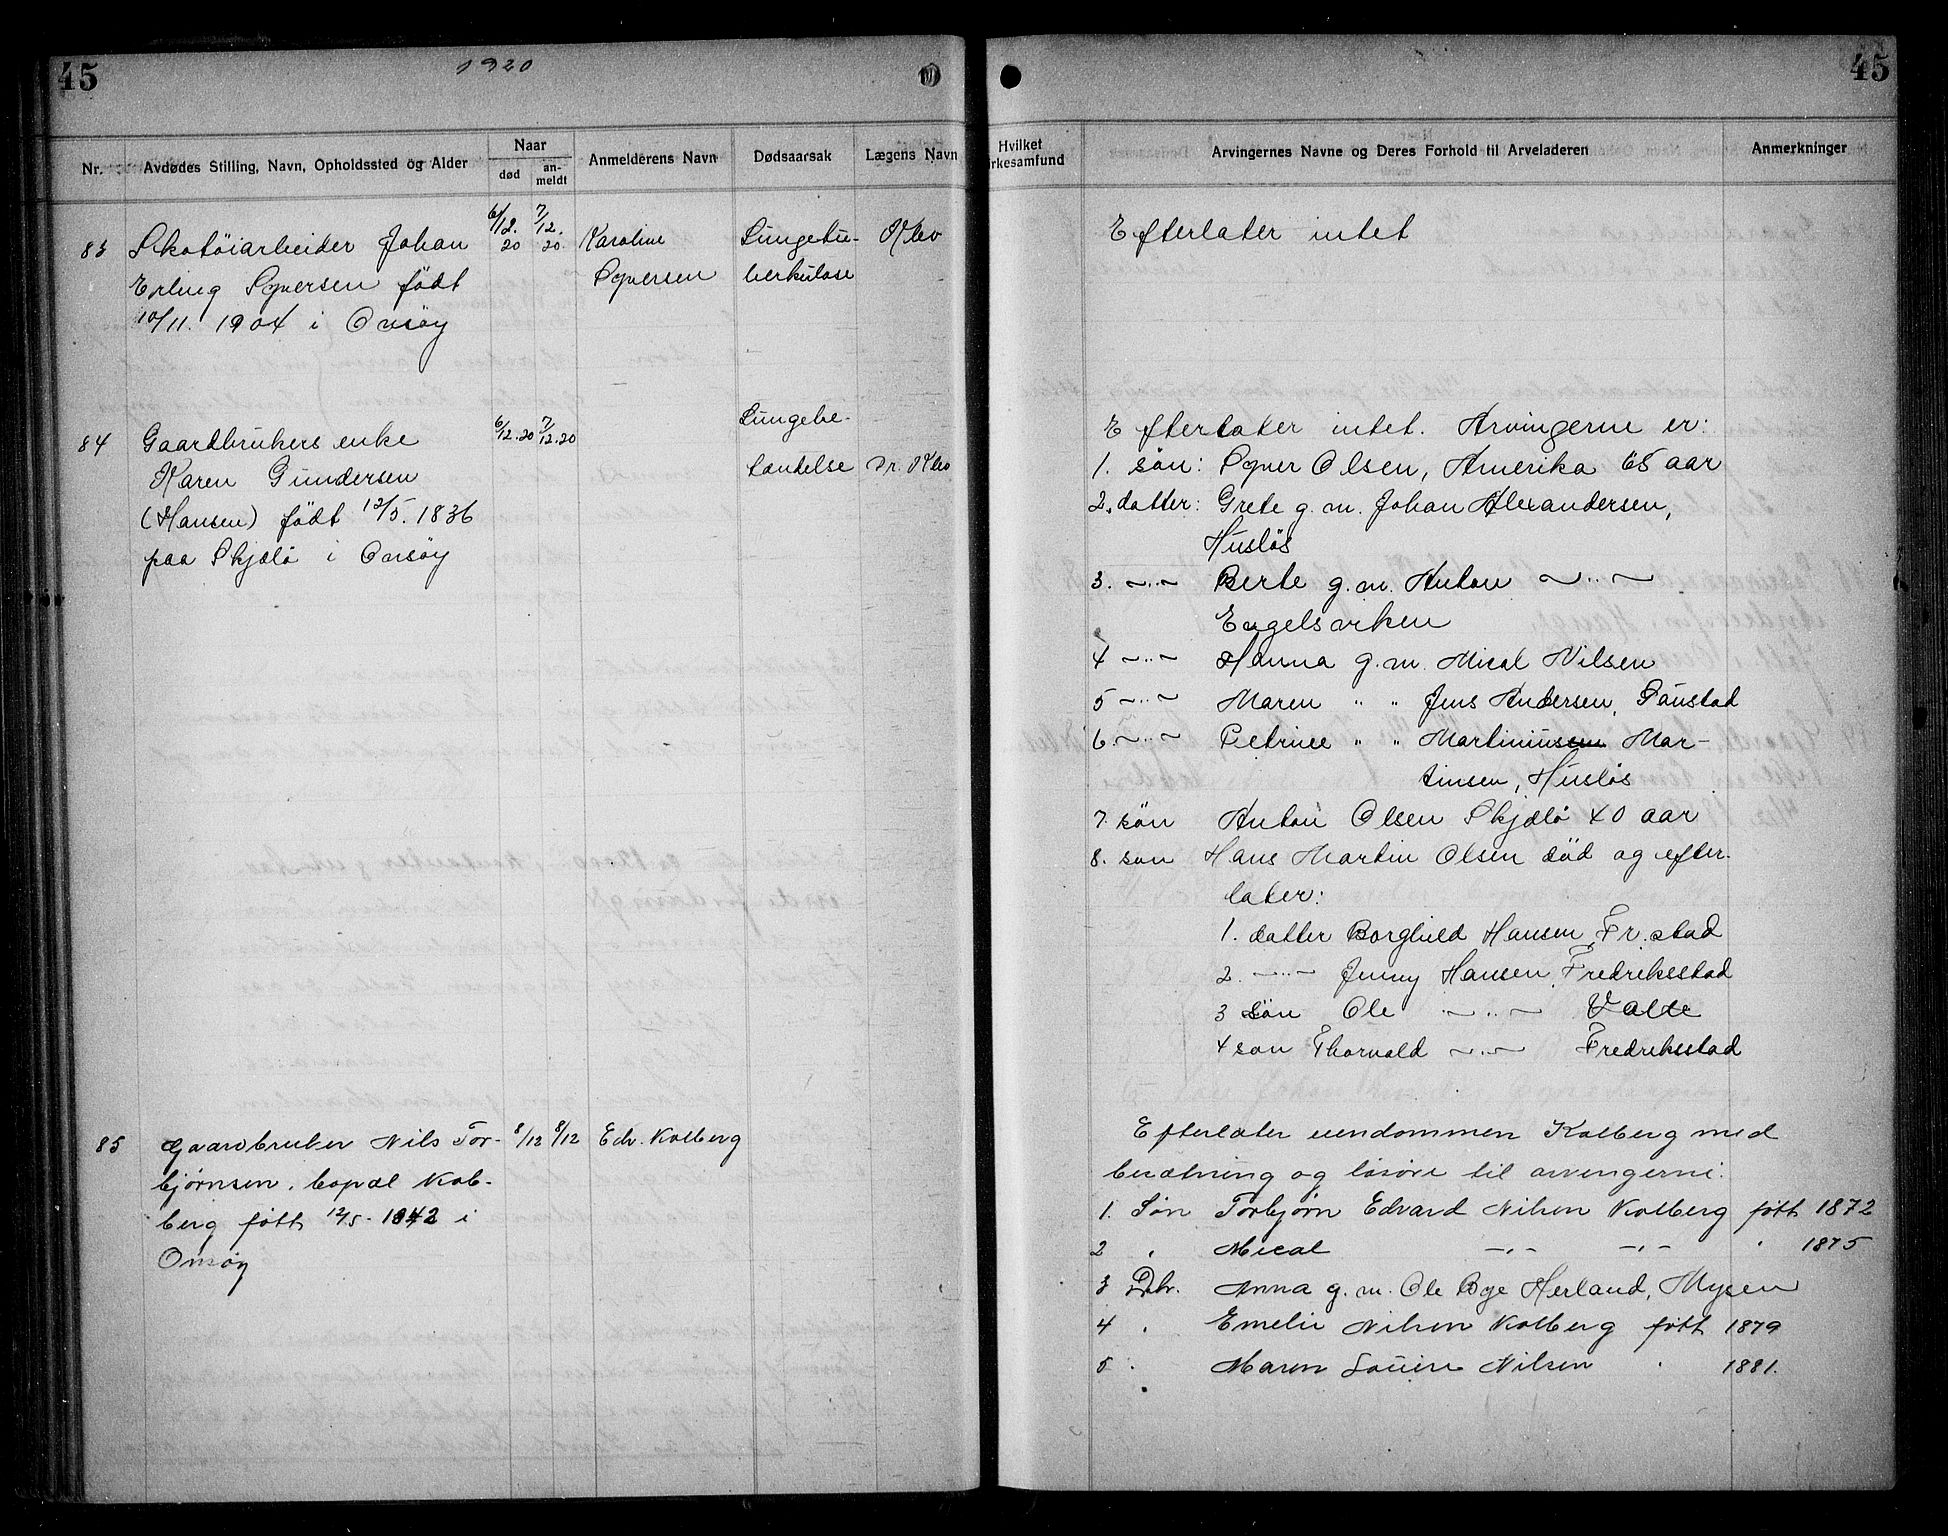 45
1920
45
Nr.
Avdødes Stilling, Navn, Opholdssted og Alder
Naar
død
an-
meldt
Anmelderens Navn
Dødsaarsak
Lægens Navn
Hvilket
rkesamfund
Arvingernes Navne og Deres Forhold til Arveladeren
Anmerkninger
83 Skotøiarbeider Johan
Erling Syversen født
10/11. 1904 i Onsøy
6/12. 20
7/12. 20.
Karoline
Syversen
Lungetu-
berkulose
Klev
Efterlater intet
84 Gaardbrukers enke
Karen Gundersen
(Hansen) født 12/5. 1836
paa Skjælø i Onsøy
6/12.20 7/12.20
Lungebe-
tændelse
Dr. Klev
Efterlater intet. Arvingerne er:
1. søn: Syver Olsen, Amerika 65 aar
2. datter: Grete g.m. Johan Alexandersen,
Husløs
3. -"- Berte g.m. Anton -"-
Engelsviken
4 -"- Hanna g.m. Mical Nilsen
5 -"- Maren " " Jens Andersen, Saustad
6. -"- Petrine " " Martiniusen Mar-
tinsen, Husløs
7. søn Anton Olsen Skjælø 40 aar
8. søn Hans Martin Olsen død og efter-
later:
1. datter Borghild Hansen, Fr.stad
2. -"- Jenny Hansen, Fredriksstad
3 søn Ole -"- Valde
4 søn Thorvald -"- Fredriksstad
85 Gaardbruker Nils Tor-
bjørnsen, bopæl Kol-
berg født 12/5- 1842 i
Onsøy
8/12 8/12 Edv. Kolberg
Efterlater eiendommen Kolberg med
besætning og løsøre til arvingerne:
1. Søn Torbjørn Edvard Nilsen Kolberg født 1872
2 " Mical -"- -"- " 1875
3 Dtr. Anna g.m. Ole Bye Herland, Mysen
4 " Emelie Nilsen Kolberg født 1879
5 " Maren Louise Nilsen " 1881.